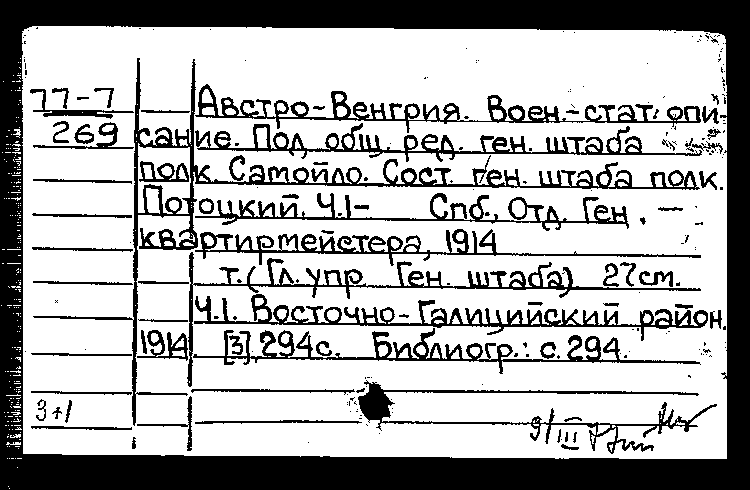 77-7
269
Австро-Венгрия. Воен.-стат. опи-
сание. Под общ. ред. ген. штаба
полк. Самойло. Сост. ген. штаба полк.
Потоцкий. Ч.1- Спб., Отд. Ген. —
квартирмейстера, 1914
т. (Гл. упр. Ген. штаба). 27см.
Ч.1. Восточно-Галицийский район.
1914. [3], 294с. Библиогр.: с. 294.
3+1
9/III